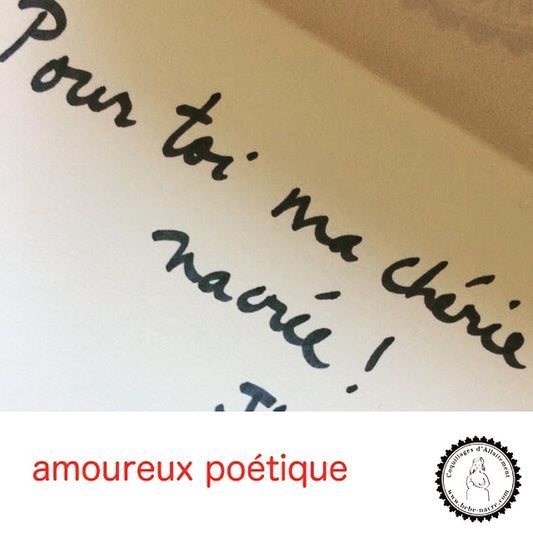 Pour toi ma chérie
nacrée !
amoureux poétique
Coquillages d'Allaitement
www.bebe-nacre.com